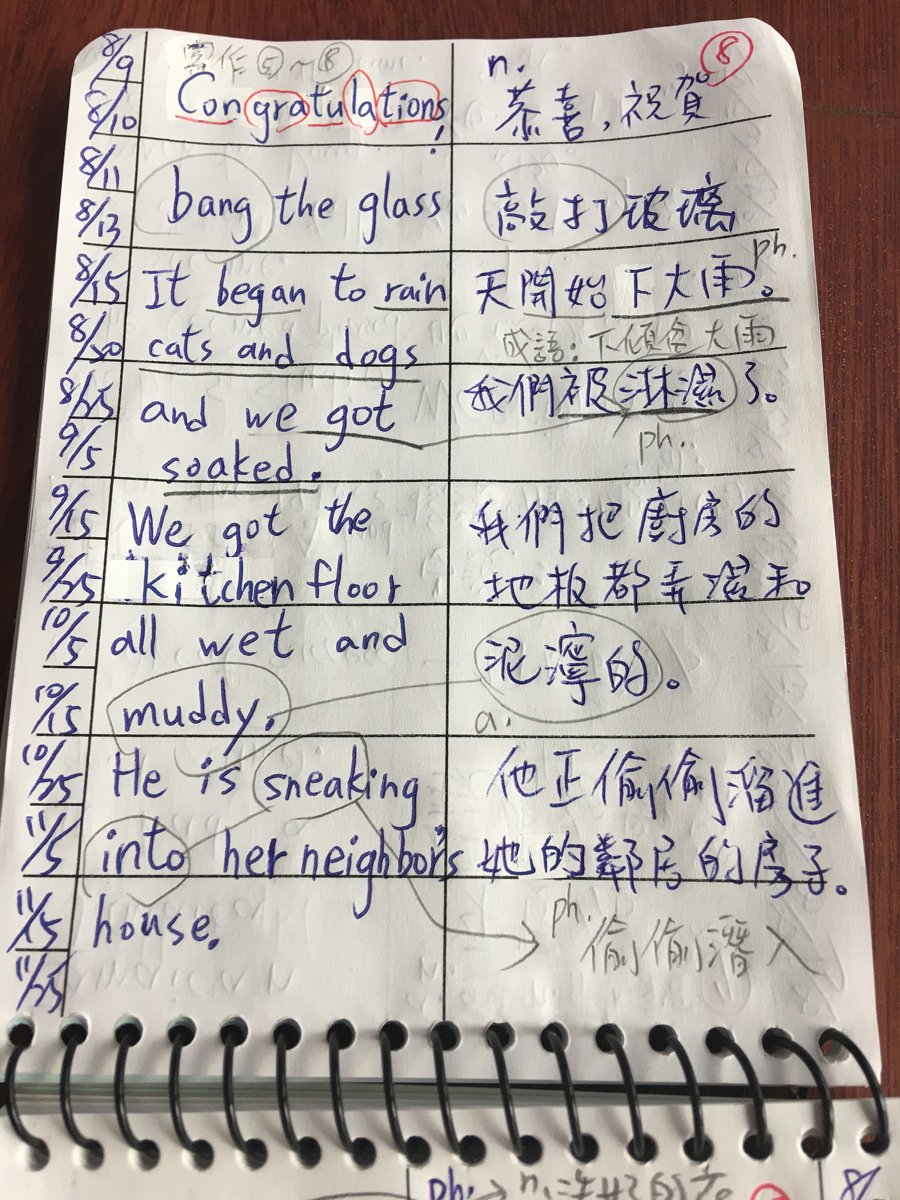 8/9
8/10
8/11
8/13
8/15
8/20
8/25
9/5
9/15
9/25
10/5
10/15
10/25
11/5
11/15
11/25
寫作⑤~⑧
Congratulations!
bang the glass
It began to rain
cats and dogs
and we got
soaked.
We got the
kitchen floor
all wet and
muddy.
He is sneaking
into her neighbor's
house.
n.
⑧
恭喜,祝賀
敲打玻璃
ph.
天開始下大雨。
成語:下傾盆大雨
我們被淋濕了。
ph.
我們把廚房的
地板都弄濕和
泥濘的。
a.
他正偷偷溜進
她的鄰居的房子。
ph.
偷偷潛入
ph. → n.
8/